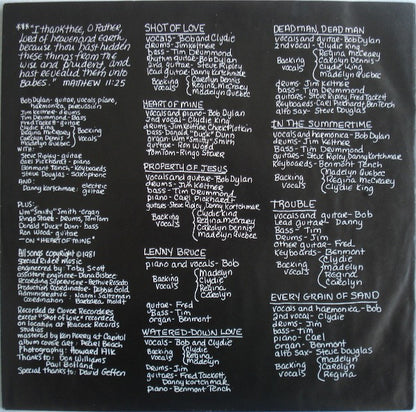 *** "I thank thee, O Father,
lord of heaven and Earth,
because thou hast hidden
these things from the
wise and prudent, and
hast revealed them unto
Babes." MATTHEW 11:25
Bob Dylan- guitar, vocals, piano,
harmonica, percussion
Jim Keltner- drums
Tim Drummond- Bass
Fred Tackett- guitar
Clydie King
Regina McCreary
Carolyn Dennis
Madelyn Quebec
Backing
vocals
WITH:
Steve Ripley- guitar
Carl Pickhardt- piano
Benmont Tench- Keyboards
Steve Douglas- saxophone
AND:
Danny Kortchmar: electric
guitar
PLUS:
Wm "Smitty" Smith- organ
Ringo Starr- Drums, TomTom
Donald "Duck" Dunn- bass
Ron Wood- guitar
—ON "HEART OF MINE"
All songs copyright © 1981
special rider music
engineered by Toby Scott
assistant engineer: Dana Bisbee
Recording Supervisor- Arthur Rosato
Production Coordinator- Debbie Gold
Administrative: Naomi Saltzman
coordination: Barbara Moldt
Recorded at Clover Recorders
except "Shot of Love" recorded
on location at Peacock Records
Studios
mastered by Ken Perry at Capitol
album cover art: Pearl Beach
Photography: Howard Alk
Thanks to: Don Williams
Paul Holland
Special thanks to David Geffen
SHOT OF LOVE
vocals- Bob and Clydie
drums- Jim Keltner
bass- Tim Drummond
Rhythm guitar- Bob Dylan
2nd guitar- Steve Ripley
Lead guitar- Danny Kortchmar
Backing
vocals
Carolyn Dennis
Regina McCreary
Madelyn Quebec
HEART OF MINE
vocals and piano- Bob Dylan
2nd vocal- Clydie King
drums- Jim Keltner Chuck Plotkin
bass- Donald "Duck" Dunn
organ Wm "Smitty" Smith
guitar- Ron Wood
TomTom- Ringo Starr
PROPERTY OF JESUS
vocals and guitar- Bob Dylan
drums- Jim Keltner
bass- Tim Drummond
piano- Carl Pickhardt
guitars Steve Ripley, Danny Kortchmar
Backing
vocals
Clydie King
Regina McCreary
Carolyn Dennis
Madelyn Quebec
LENNY BRUCE
piano and vocals- Bob
Backing
vocals
Madelyn
Clydie
Regina
Carolyn
guitar- Fred
Bass- Tim
organ- Benmont
drums- Jim
WATERED-DOWN LOVE
vocals- Bob and Clydie
Backing
vocals
Clydie
Regina
Madelyn
Drums- Jim
guitars- Fred Tackett,
Danny Kortchmar
piano- Benmont Tench
DEAD MAN, DEAD MAN
vocals and guitar- Bob Dylan
2nd vocal- Clydie King
Backing
vocals
Regina McCreary
Carolyn Dennis
Clydie King
Madelyn Quebec
drums- Jim Keltner
bass- Tim Drummond
guitars- Steve Ripley, Fred Tackett
Keyboards- Carl Pickhardt, Ben Tench
alto sax- Steve Douglas
IN THE SUMMERTIME
vocals and harmonica- Bob Dylan
drums- Jim Keltner
Bass- Tim Drummond
guitars- Steve Ripley, Danny Kortchmar
Keyboards- Benmont Tench
Backing
vocals
Madelyn Quebec
Regina McCreary
Clydie King
TROUBLE
vocals and guitar- Bob
Lead guitar- Danny
Bass- Tim
Drums- Jim
other guitar- Fred
Keyboards- Benmont
Backing
vocals
Clydie
Madelyn
Regina
Carolyn
EVERY GRAIN OF SAND
vocals and harmonica- Bob
2nd vocal- Clydie
drums- Jim
bass- Tim
piano- Carl
organ- Benmont
alto sax- Steve Douglas
Backing
vocals
Madelyn
Carolyn
Regina